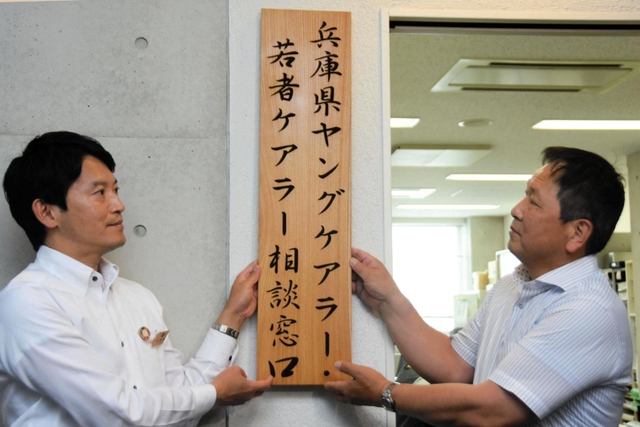 兵庫県ヤングケアラー・
若者ケアラー相談窓口